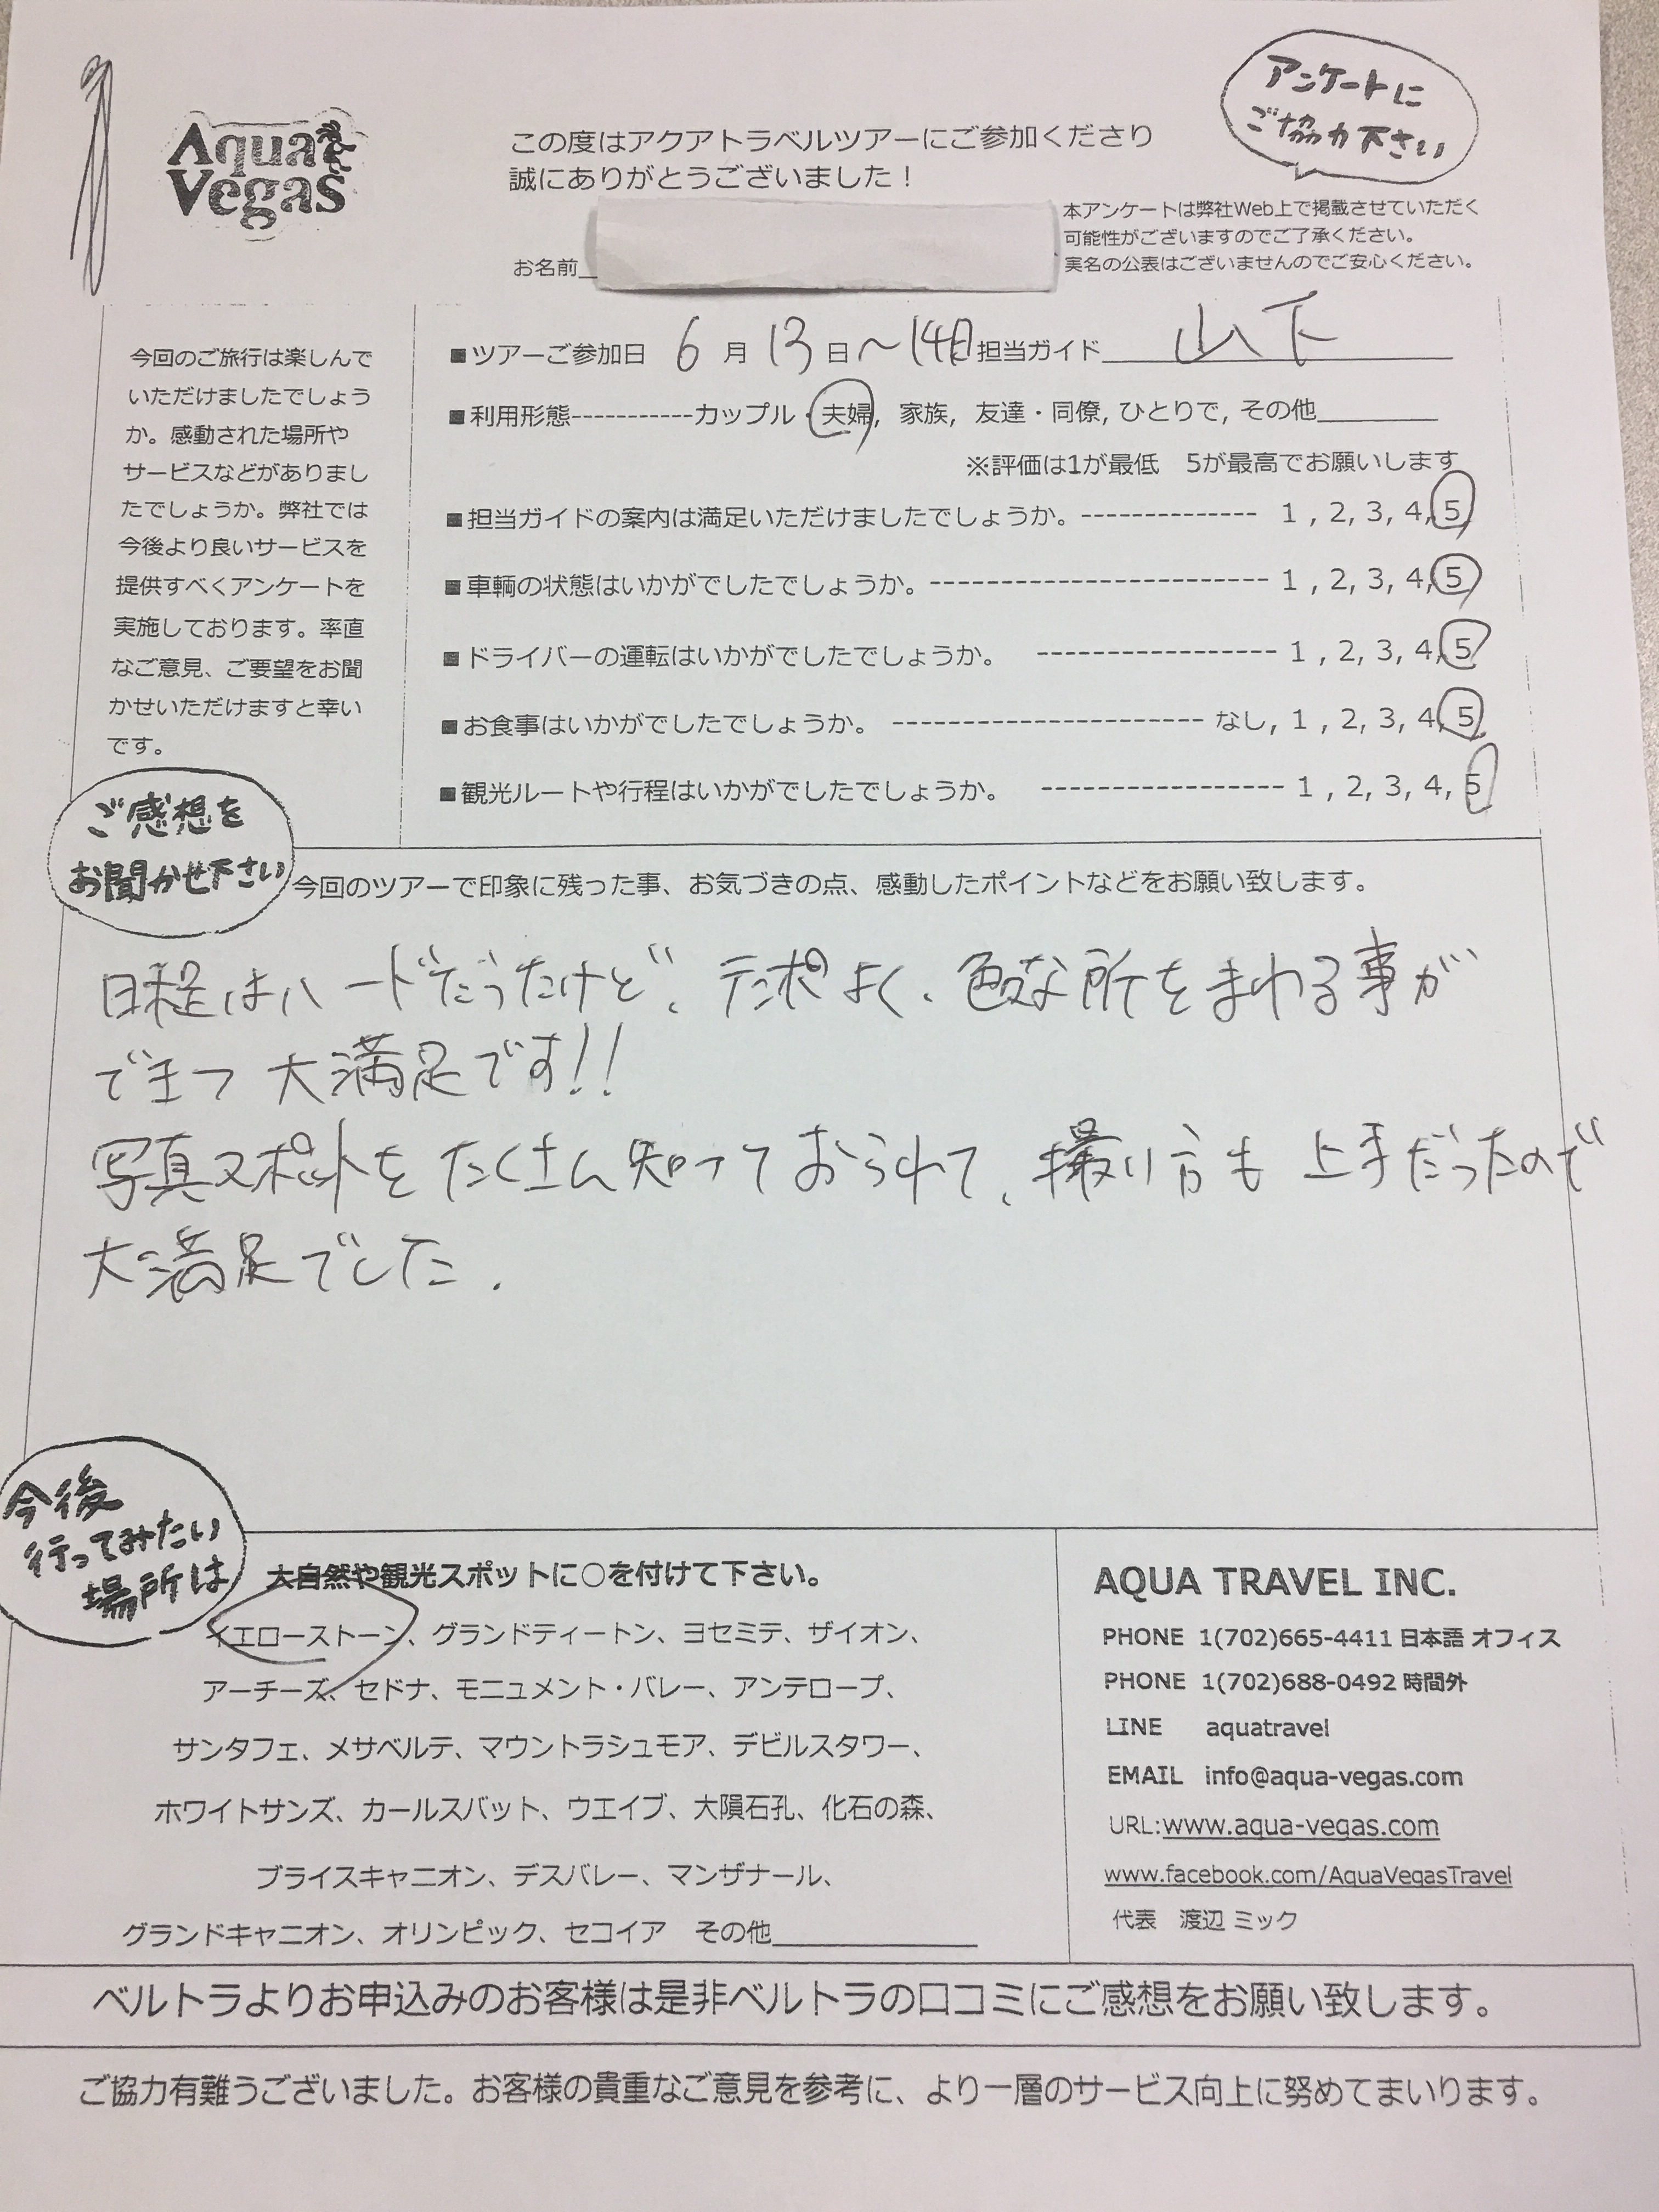 Aqua
Vegas
この度はアクアトラベルツアーにご参加くださり
誠にありがとうございました！
アンケートに
ご協力下さい
本アンケートは弊社Web上で掲載させていただく
可能性がございますのでご了承ください。
実名の公表はございませんのでご安心ください。
お名前
今回のご旅行は楽しんで
いただけましたでしょう
か。感動された場所や
サービスなどがありまし
たでしょうか。弊社では
今後より良いサービスを
提供すべくアンケートを
実施しております。率直
なご意見、ご要望をお聞
かせいただけますと幸い
です。
■ツアーご参加日 6 月 13 日 ～14日 担当ガイド 山下
■利用形態-----------カップル・夫婦, 家族, 友達・同僚, ひとりで, その他________
※評価は1が最低　5が最高でお願いします
■担当ガイドの案内は満足いただけましたでしょうか。------------- 1 , 2, 3, 4, 5
■車輌の状態はいかがでしたでしょうか。------------------------ 1 , 2, 3, 4, 5
■ドライバーの運転はいかがでしたでしょうか。 ----------------- 1 , 2, 3, 4, 5
■お食事はいかがでしたでしょうか。 ---------------------- なし, 1 , 2, 3, 4, 5
■観光ルートや行程はいかがでしたでしょうか。 ----------------- 1 , 2, 3, 4, 5
ご感想を
お聞かせ下さい
今回のツアーで印象に残った事、お気づきの点、感動したポイントなどをお願い致します。
日程はハードだったけど、テンポよく、色々な所をまわる事が
できて 大満足です!!
写真スポットをたくさん知っておられて、撮り方も上手だったので
大満足でした.
今後
行ってみたい
場所は
大自然や観光スポットに○を付けて下さい。
イエローストーン、グランドティートン、ヨセミテ、ザイオン、
アーチーズ、セドナ、モニュメント・バレー、アンテロープ、
サンタフェ、メサベルテ、マウントラシュモア、デビルスタワー、
ホワイトサンズ、カールスバット、ウエイブ、大隕石孔、化石の森、
ブライスキャニオン、デスバレー、マンザナール、
グランドキャニオン、オリンピック、セコイア　その他____________
AQUA TRAVEL INC.
PHONE 1(702)665-4411 日本語 オフィス
PHONE 1(702)688-0492 時間外
LINE aquatravel
EMAIL info@aqua-vegas.com
URL:www.aqua-vegas.com
www.facebook.com/AquaVegasTravel
代表　渡辺 ミック
ベルトラよりお申込みのお客様は是非ベルトラの口コミにご感想をお願い致します。
ご協力有難うございました。お客様の貴重なご意見を参考に、より一層のサービス向上に努めてまいります。